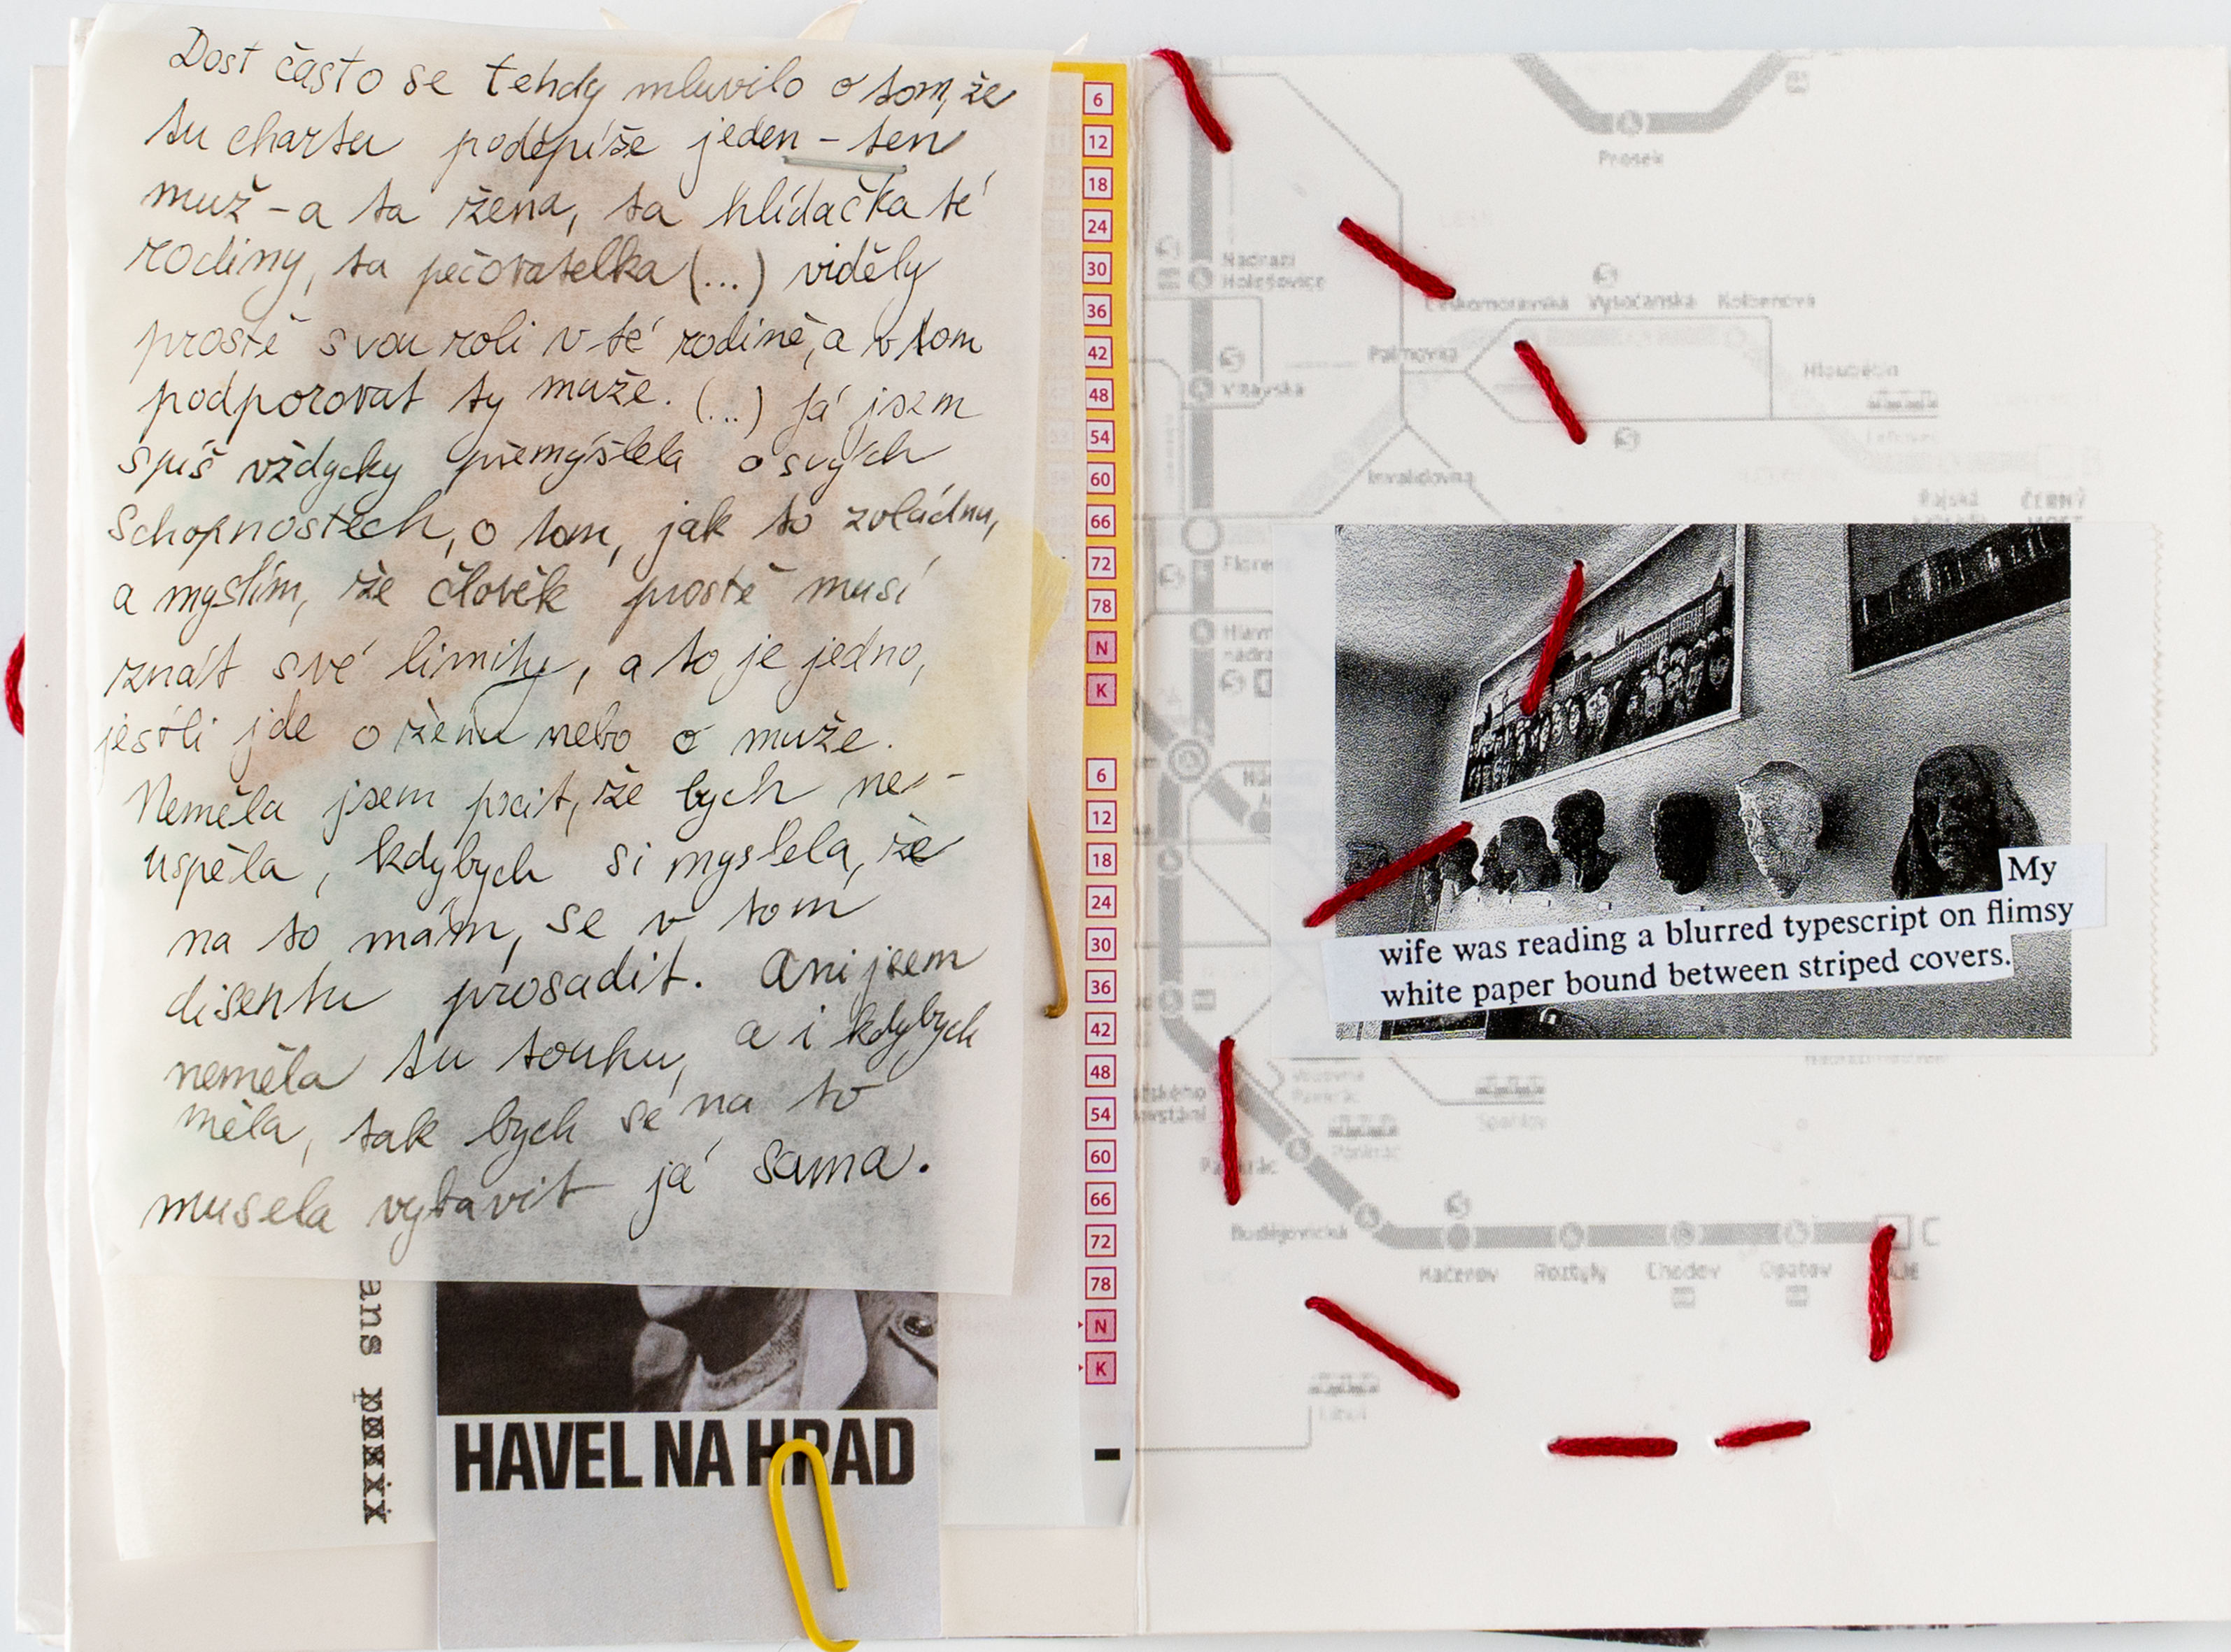 Dost často se tehdy mluvilo o tom, že
tu chartu podepíše jeden – ten
muž – a ta žena, ta hlídačka té
rodiny, ta pečovatelka (...) viděly
prostě svou roli v té rodině, a v tom
podporovat ty muže. (...) Já jsem
spíš vždycky přemýšlela o svých
schopnostech, o tom, jak to zvládnu,
a myslím, že člověk prostě musí
znát své limity, a to je jedno,
jestli jde o ženu nebo o muže.
Neměla jsem pocit, že bych ne-
uspěla, kdybych si myslela, že
na to mám, se v tom
disentu prosadit. Ani jsem
neměla tu touhu, a i kdybych
měla, tak bych se na to
musela vybavit já sama.
ans
HAVEL NA HRAD
6
12
18
24
30
36
42
48
54
60
66
72
78
N
K
6
12
18
24
30
36
42
48
54
60
66
72
78
N
K
Prosek
Nádraží
Holešovice
Českomoravská Vysočanská Kolbenova
Palmovka
Hloubětín
Vltavská
Invalidovna
Rajská
ČERNÝ
MOST
Floren
Hlavn
nádra
My
wife was reading a blurred typescript on flimsy
white paper bound between striped covers.
Pankrác
Budějovická
Kačerov Roztyly Chodov Opatov
C
Libuš